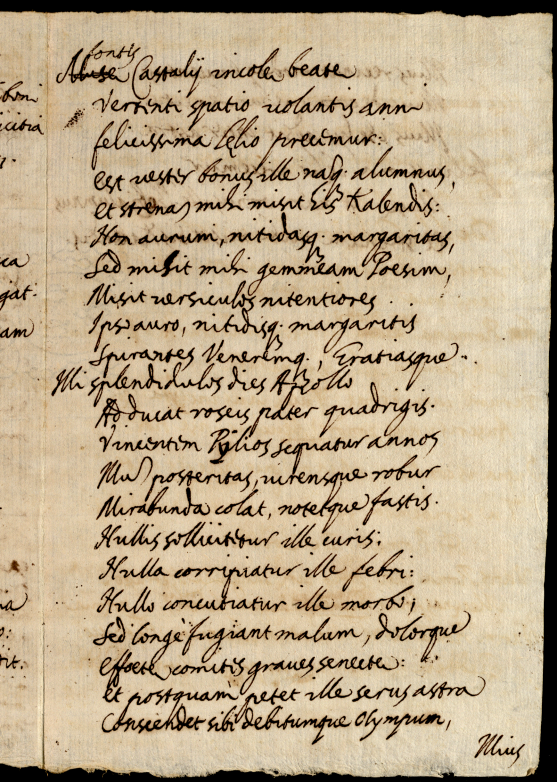 boni
icitia
ca
gat.
am
tit.
fontis
Musæ Castalij incolæ beatæ
Vertenti spatio uolantis anni
felicissima Lælio precemur:
est uester bonus ille naq. alumnus,
et strenas mihi misit his Kalendis:
Non aurum, nitidasq. margaritas,
Sed misit mihi gemmeam Poesim,
Misit uersiculos nitentiores
Ipso auro, nitidisq. margaritis
Spirantes Veneremq., Gratiasque.
Illi splendidulos dies Apollo
Adducat roseis pater quadrigis.
Vincentem Pylios sequatur annos
Illum posteritas, uirensque robur
Mirabunda colat, notetque fastis.
Nullis sollicitetur ille curis:
Nulla corripiatur ille febri:
Nullo concutiatur ille morbo;
Sed longè fugiant malum, dolorque
Effoetæ comites graues senectæ:
Et postquam petet ille serus astra
Conscendet sibi debitumque Olympum,
Illius